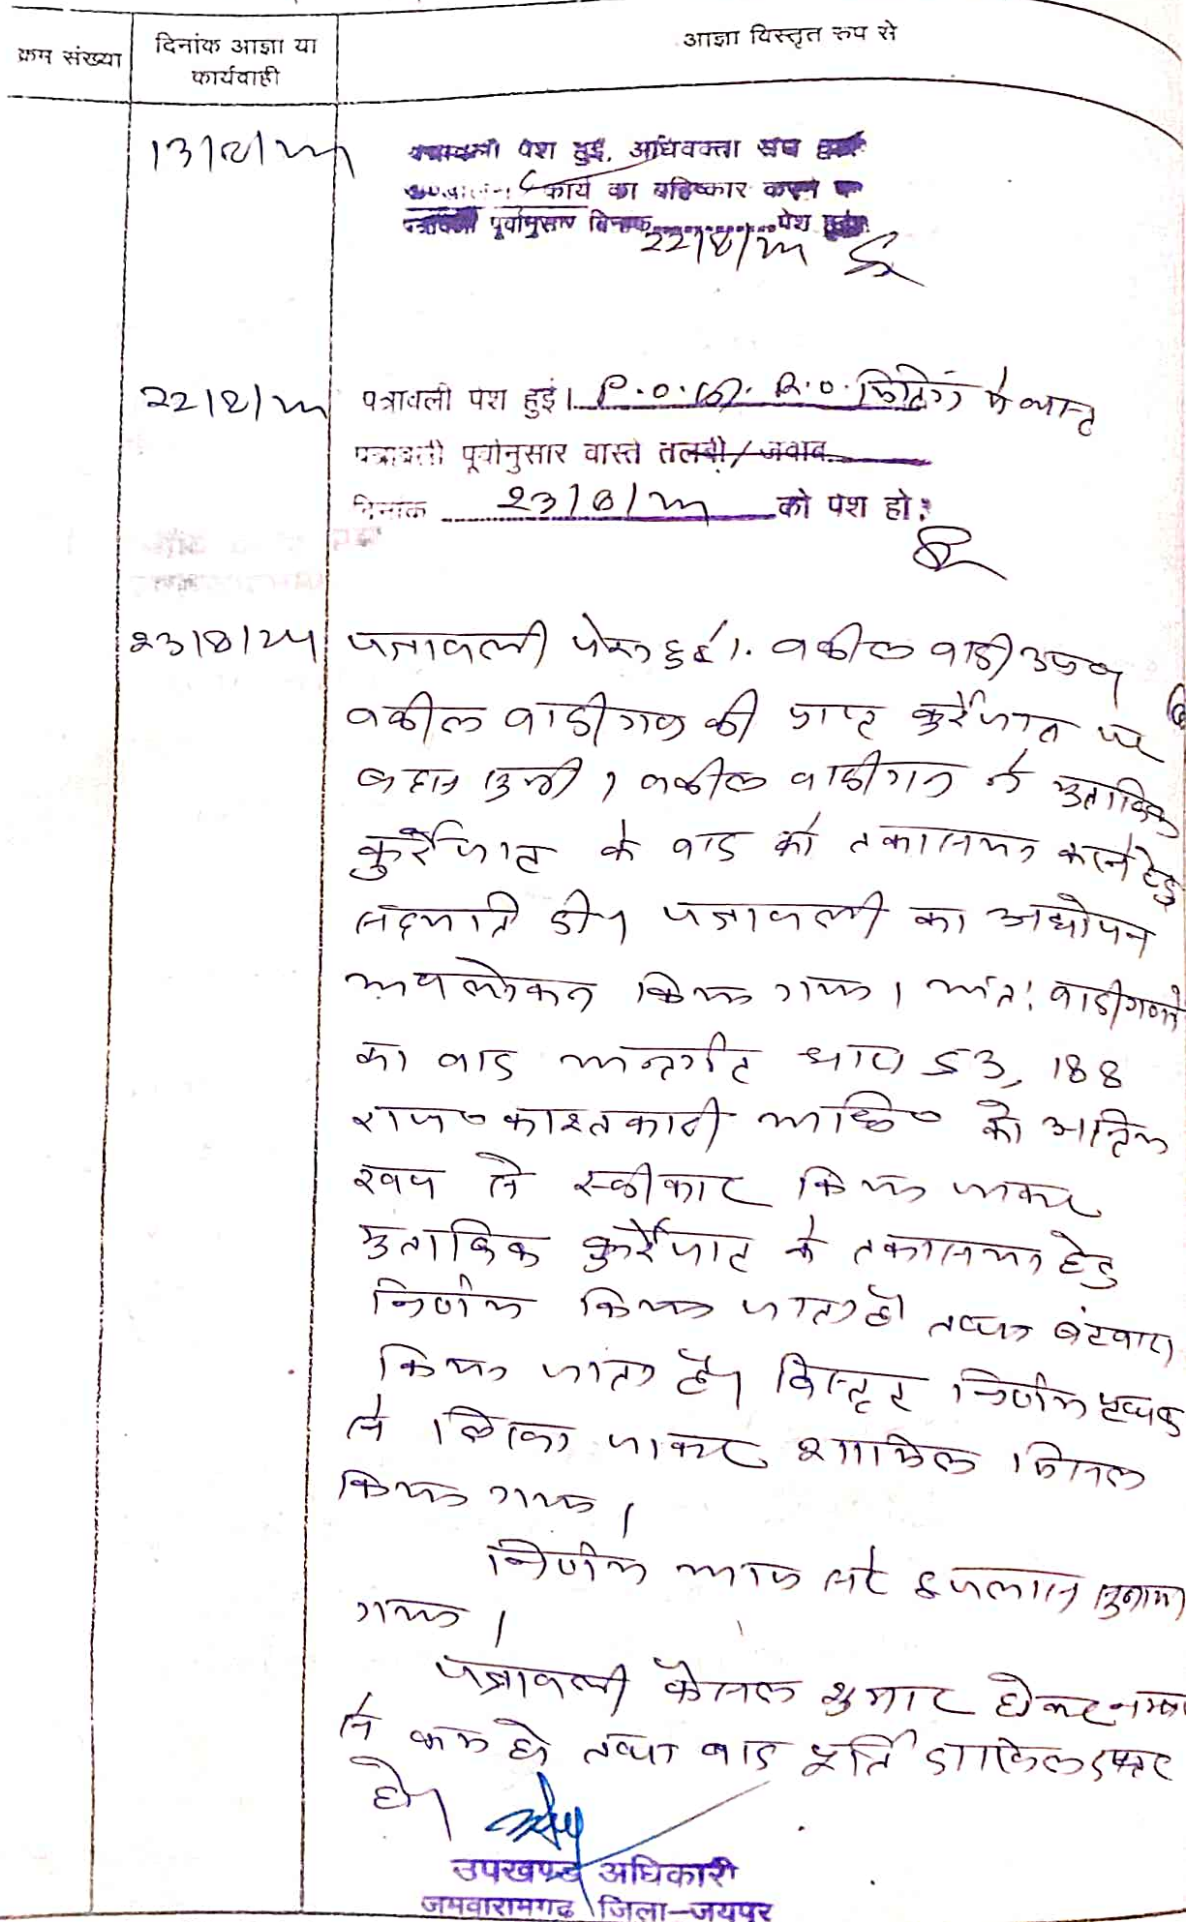 क्रम संख्या
दिनांक आज्ञा या
कार्यवाही
आज्ञा विस्तृत रूप से
पेश हुई, अधिवक्ता संघ
कार्य का बहिष्कार करने
पूर्वानुसार दिनांक 22/8/24 पेश
22/8/24 पत्रावली पेश हुई। P.O.
पत्रावली पूर्वानुसार वास्ते तलबी/जवाब
दिनांक 23/8/24 को पेश हो।
23/8/24 पत्रावली पेश हुई। वकील वादी उप०
वकील वादीगण की प्राप्त कुर्रेजात पर
बहस सुनी। वकील वादीगण ने मुताबिक
कुर्रेजात के वाद को तकासमा करने हेतु
सहमति दी। पत्रावली का अद्योपन
अवलोकन किया गया। अतः वादीगण
का वाद अन्तर्गत धारा 53, 188
राज० काश्तकारी अधि० को अन्तिम
रूप से स्वीकार किया जाकर
मुताबिक कुर्रेजात के तकासमा हेतु
निर्णय किया जाता है तथा बंटवारा
किया जाता है। विस्तृत निर्णय पृथक
से लिखा जाकर शामिल मिसल
किया गया।
निर्णय आज सरे इजलास सुनाया
गया।
पत्रावली फैसल शुमार होकर नम्बर
से कम हो तथा बाद पूर्ति दाखिल दफ्तर
हो।
उपखण्ड अधिकारी
जमवारामगढ जिला-जयपुर